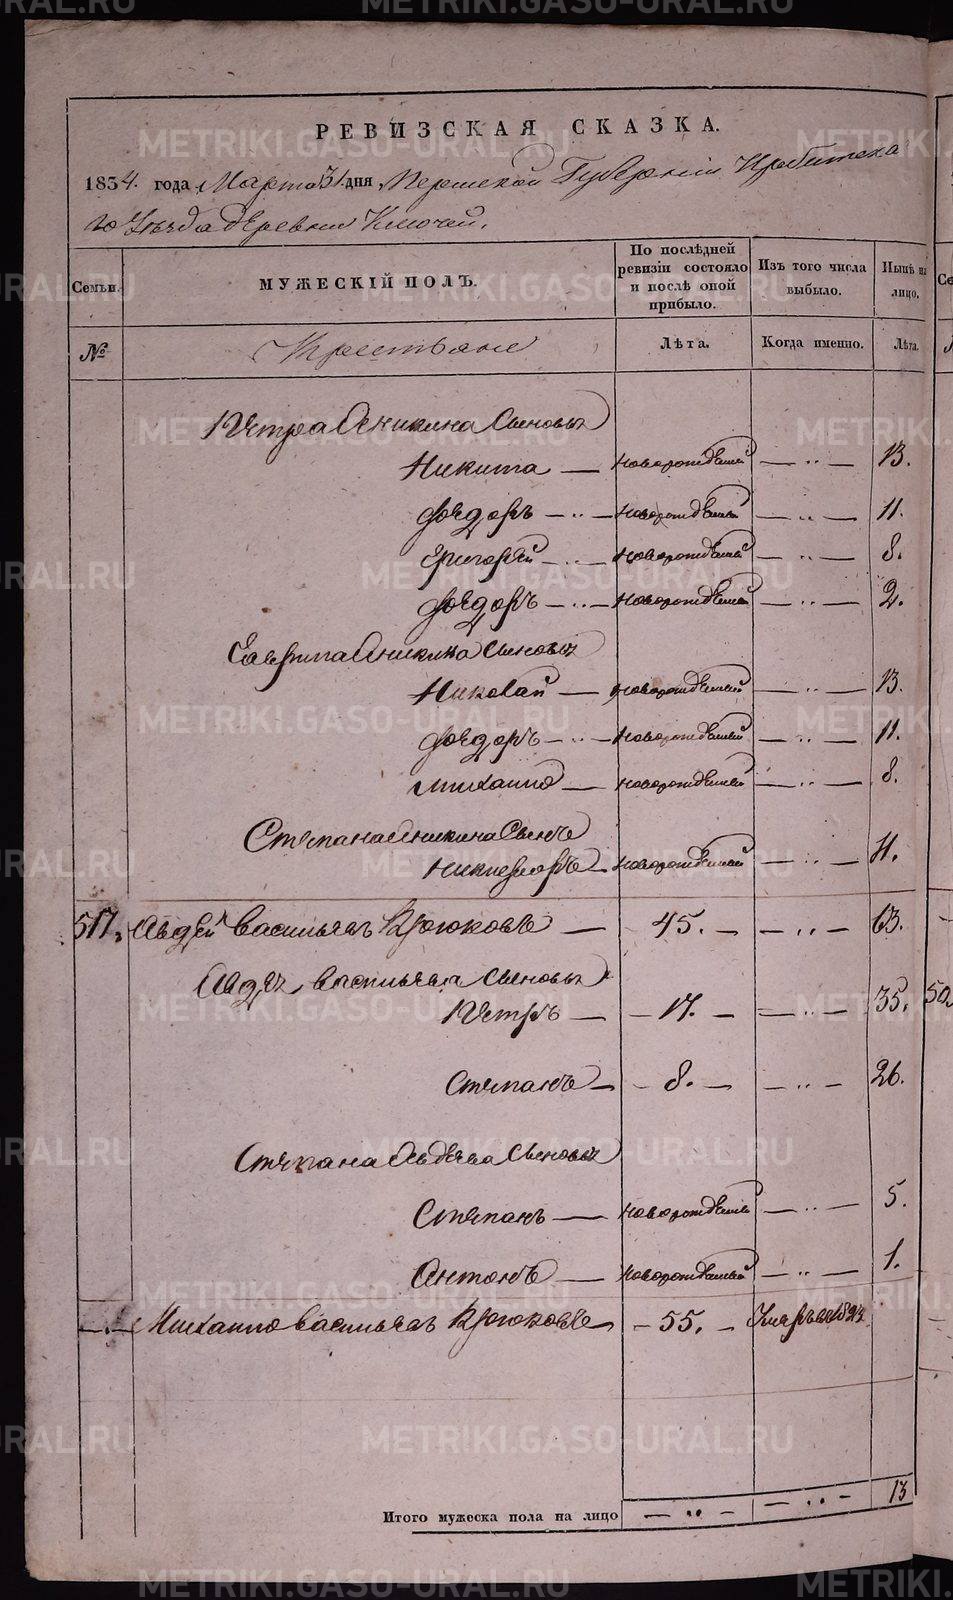 РЕВИЗСКАЯ СКАЗКА.
1834. года Марта 31 дня, Пермской Губернии Ирбитска
го Уезда деревни Ключей.
Семьи.
МУЖЕСКІЙ ПОЛЪ.
По послѣдней ревизіи состояло и послѣ оной прибыло.
Изъ того числа выбыло.
Нынѣ на лицо.
№
Крестьяне
Лѣта.
Когда именно.
Лѣта.
Петра Аникина Сыновья
Никита — новорожденный — „ — 13.
Федоръ — „ — новорожденный — „ — 11.
Григорей — „ — новорожденный — „ — 8.
Федоръ — „ — новорожденный — „ — 2.
Гаврила Аникина Сыновья
Николай — новорожденный — „ — 13.
Федоръ — „ — новорожденный — „ — 11.
Михаило — новорожденный — „ — 8.
Степана Аникина Сынъ
Никифоръ — новорожденный — „ — 11.
517. Авдей Васильевъ Крюковъ — 45. — „ — 63.
Авдея Васильева Сыновья
Петръ — 17. — „ — 35.
Степанъ — 8. — „ — 26.
Степана Авдеева Сыновья
Степанъ — новорожденный — „ — 5.
Антонъ — новорожденный — „ — 1.
— „ — Михаило Васильевъ Крюковъ — 55. — Умеръ в
Итого мужеска пола на лицо — „ — — „ — 13
METRIKI.GASO-URAL.RU